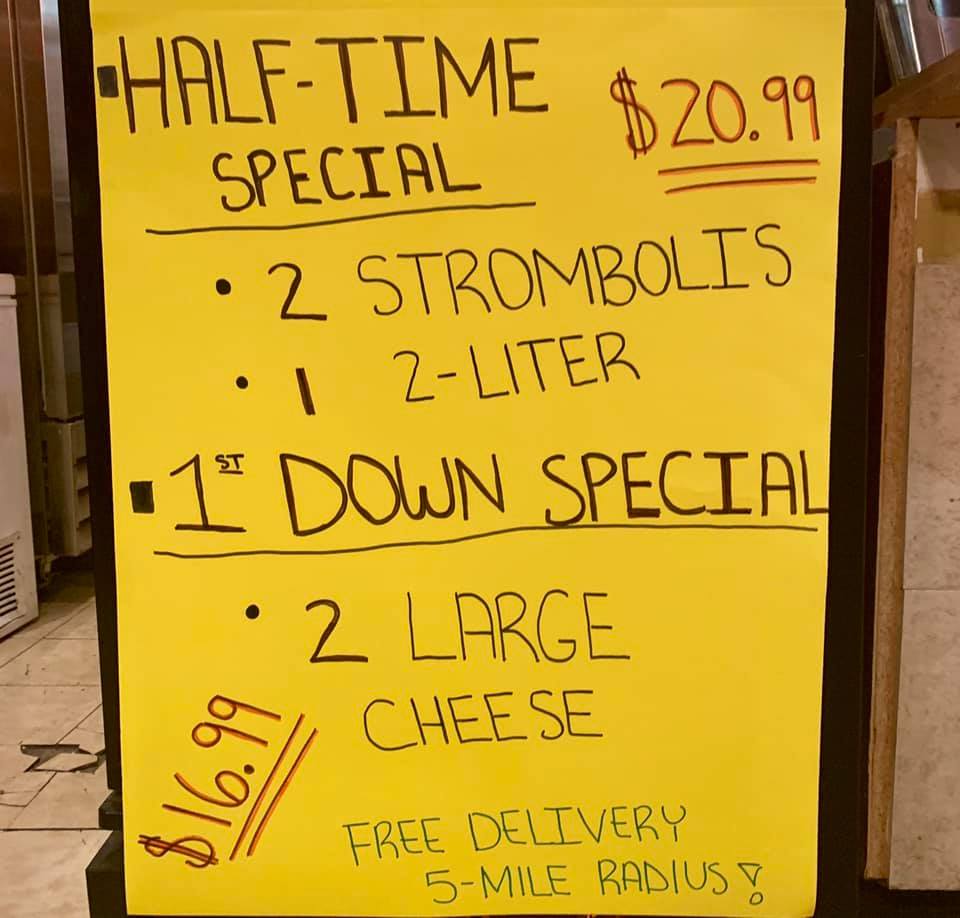 ▪HALF-TIME
SPECIAL
$20.99
• 2 STROMBOLIS
• 1 2-LITER
▪1ST DOWN SPECIAL
• 2 LARGE
CHEESE
$16.99
FREE DELIVERY
5-MILE RADIUS!